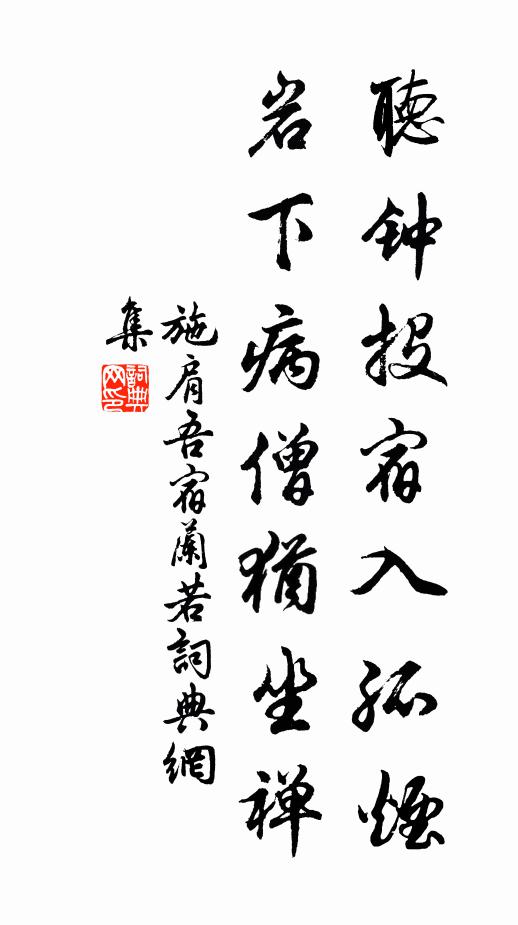 聽钟投宿入孤煙
岩下病僧猶坐禅
施肩吾宿蘭若詞典網
集
詞典
网印